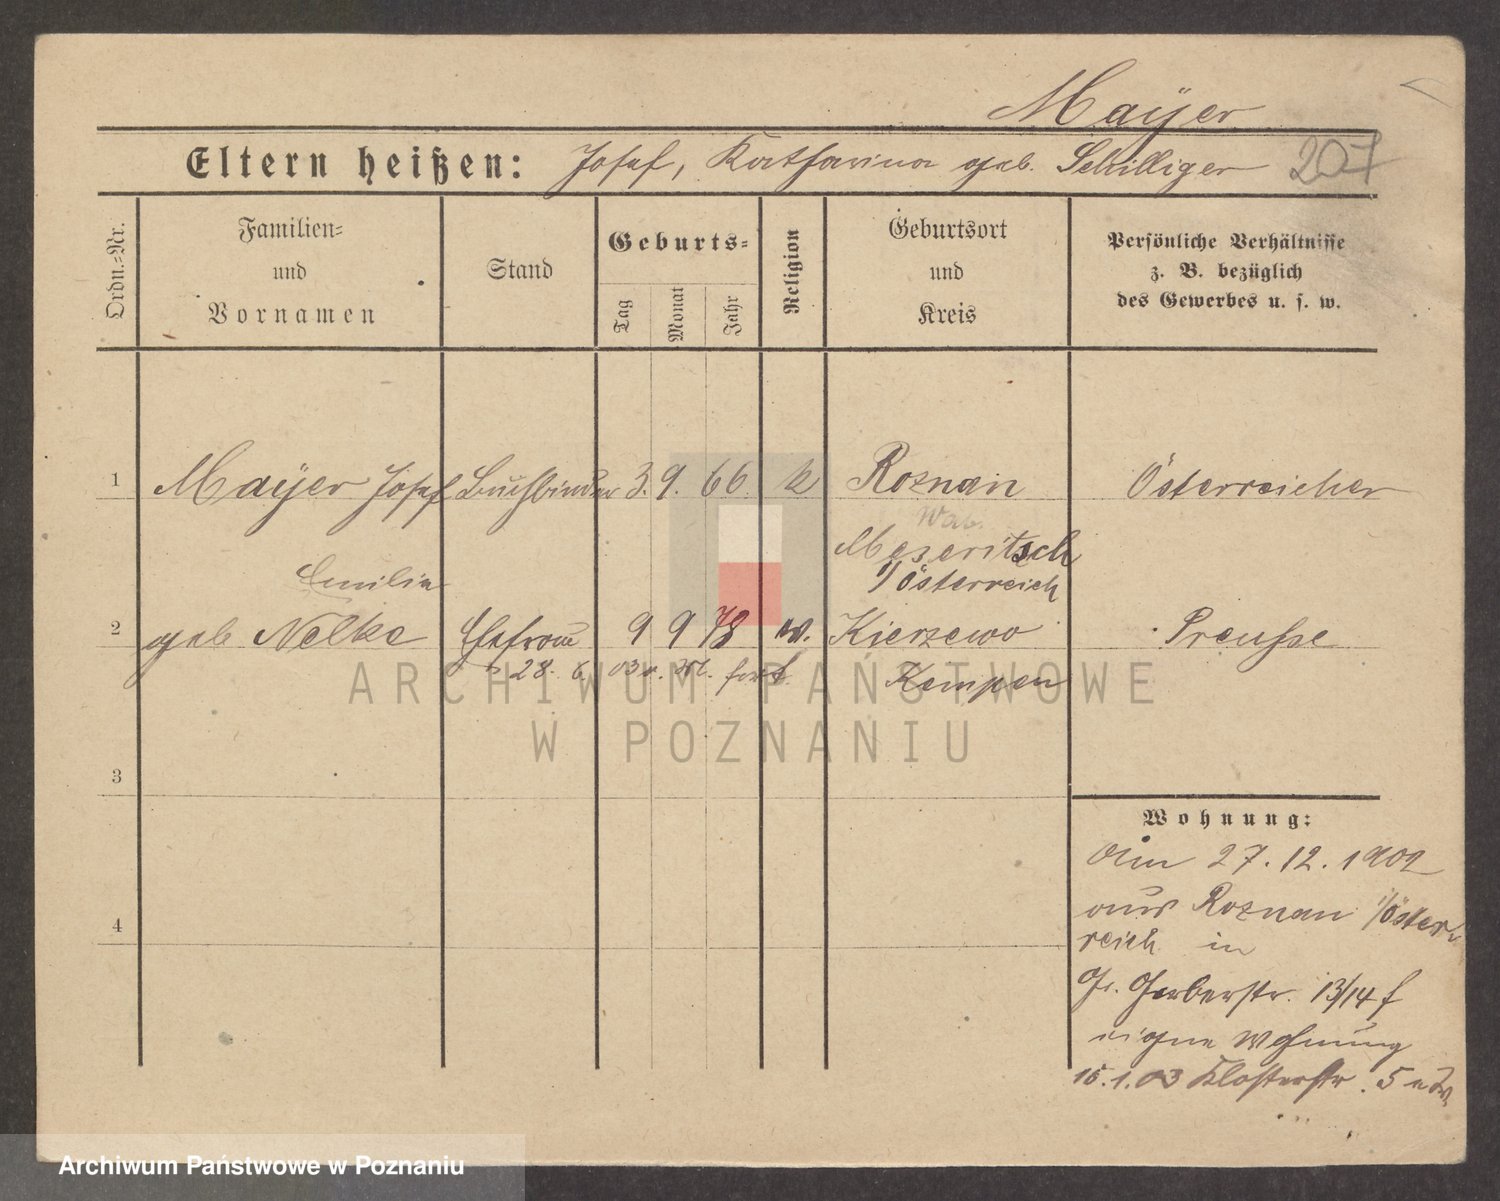 Mayer
Eltern heißen: Josef, Katharina geb. Schilliger 207
Ordn.-Nr.
Familien-
und
Vornamen
Stand
Geburts-
Tag
Monat
Jahr
Religion
Geburtsort
und
Kreis
Persönliche Verhältnisse
z. B. bezüglich
des Gewerbes u. s. w.
1 Mayer Josef Buchbinder 3. 9. 66 k Roznan Österreicher
Meseritsch
i/Österreich
Emilie
2 geb Nelke Ehefrau 9 9 78 Kierzewo Preusse
28. 6. 03 fort. Kempen
ARCHIWUM PAŃSTWOWE
W POZNANIU
3
4
Wohnung:
Am 27. 12. 1902
aus Roznan i/Öster-
reich in
Gr. Gerberstr. 13/14
eigne Wohnung
15. 1. 03 Klosterstr. 5
Archiwum Państwowe w Poznaniu